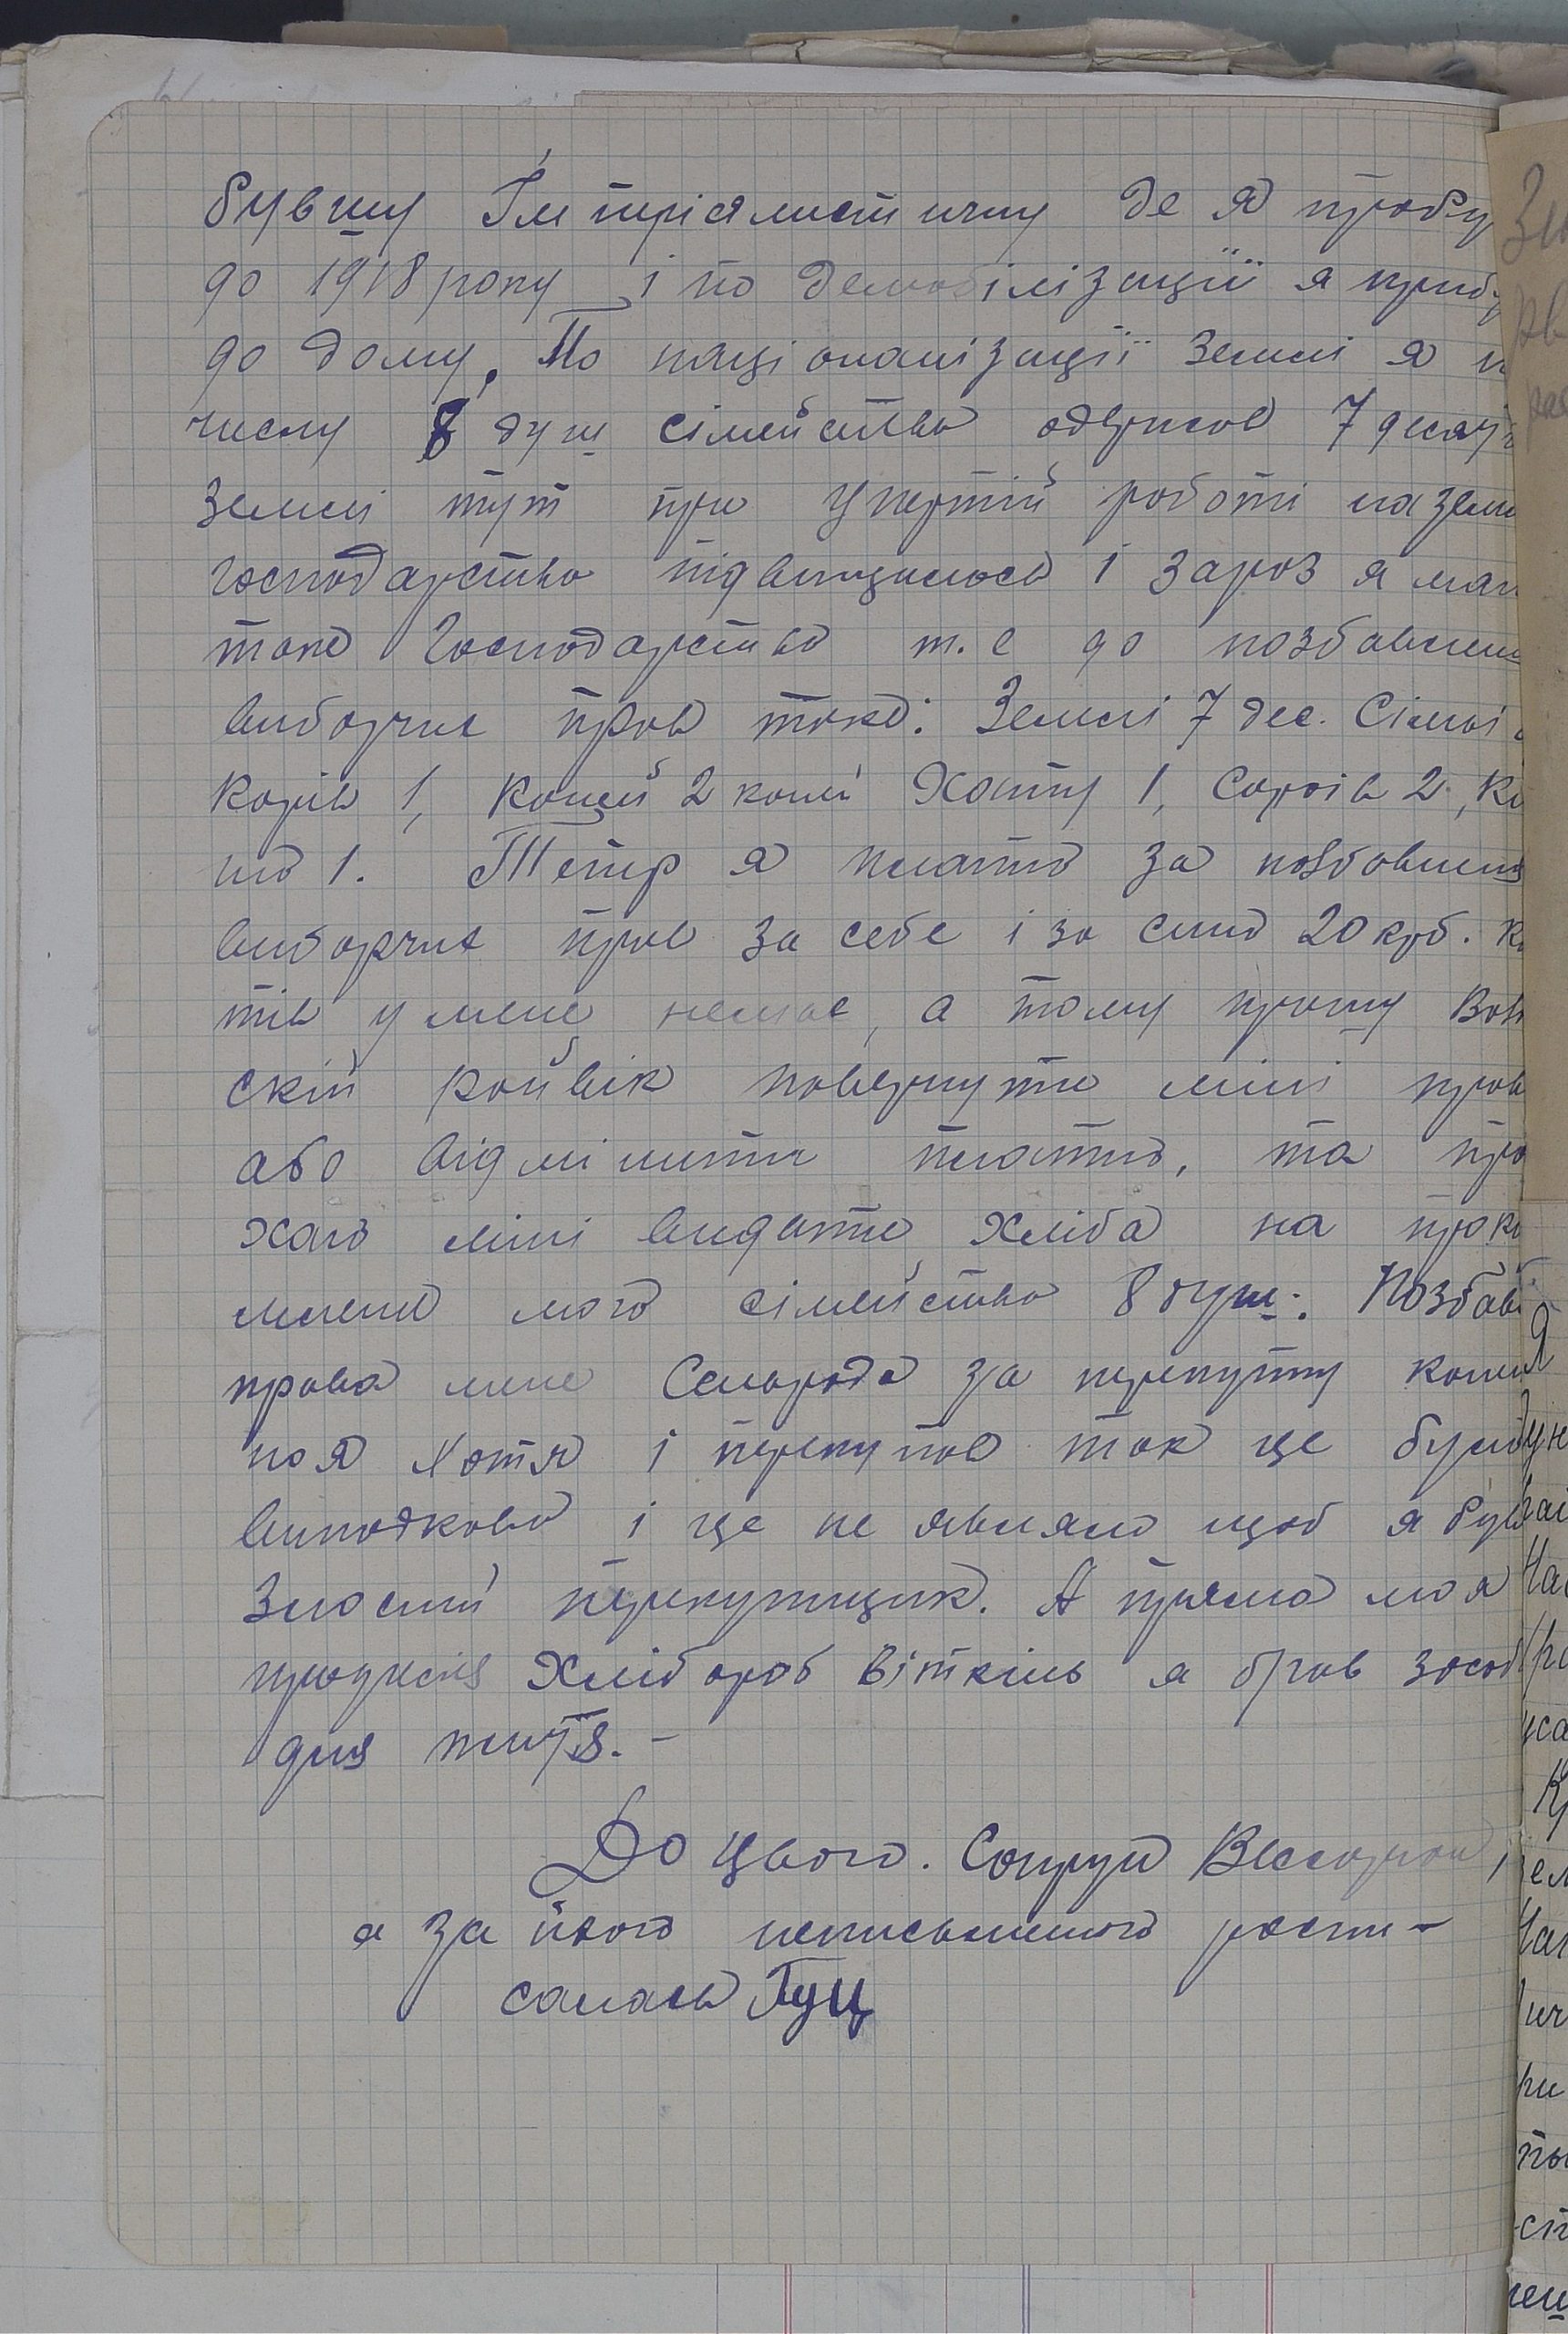 бувшу Імперіялистичну де я пробу
до 1918 року і по демобілізації я приб
до дому. По націоналізації землі я п
числу 8 душ сімейства одержав 7 десят
землі тут при упертій роботі на земл
господарство підвищилось і зараз я маю
таке господарство т.е до позбавлен
виборчих прав таке: Землі 7 дес. Сімьі
Корів 1, Коней 2 коні Хату 1, Сараїв 2, Кл
ня 1. Тепер я платю за позбавленя
виборчих прав за себе і за сина 20 крб. К
тів у мене немає, а тому прошу Вов
скій райвік повернути міні права
або відмінити платню, та про
хаю міні видати хліба на прок
млення мого сімейства 8 душ. Позбав
права мене Сельрада за перекупку коня
но я хотя і перекупав так це було
випадково і це не являло щоб я був
Злосний перекупщик. А пряма моя
професія Хлібороб віткіль я брав засоб
для життя. -
До цього. Сопрун Виссарион,
а за його неписьменного роспи-
салась Гуц